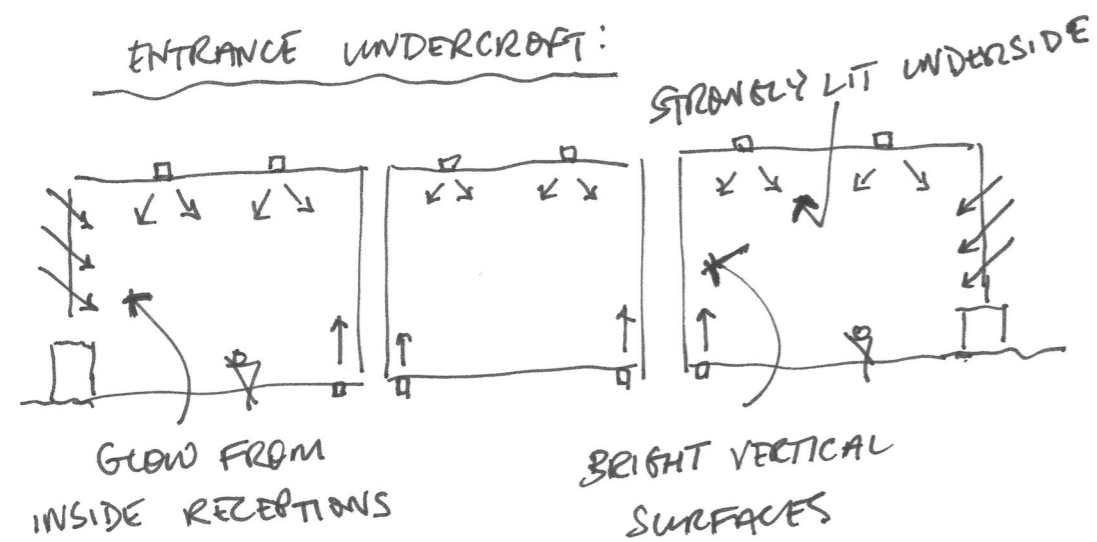 ENTRANCE UNDERCROFT:
STRONGLY LIT UNDERSIDE
GLOW FROM
INSIDE RECEPTIONS
BRIGHT VERTICAL
SURFACES